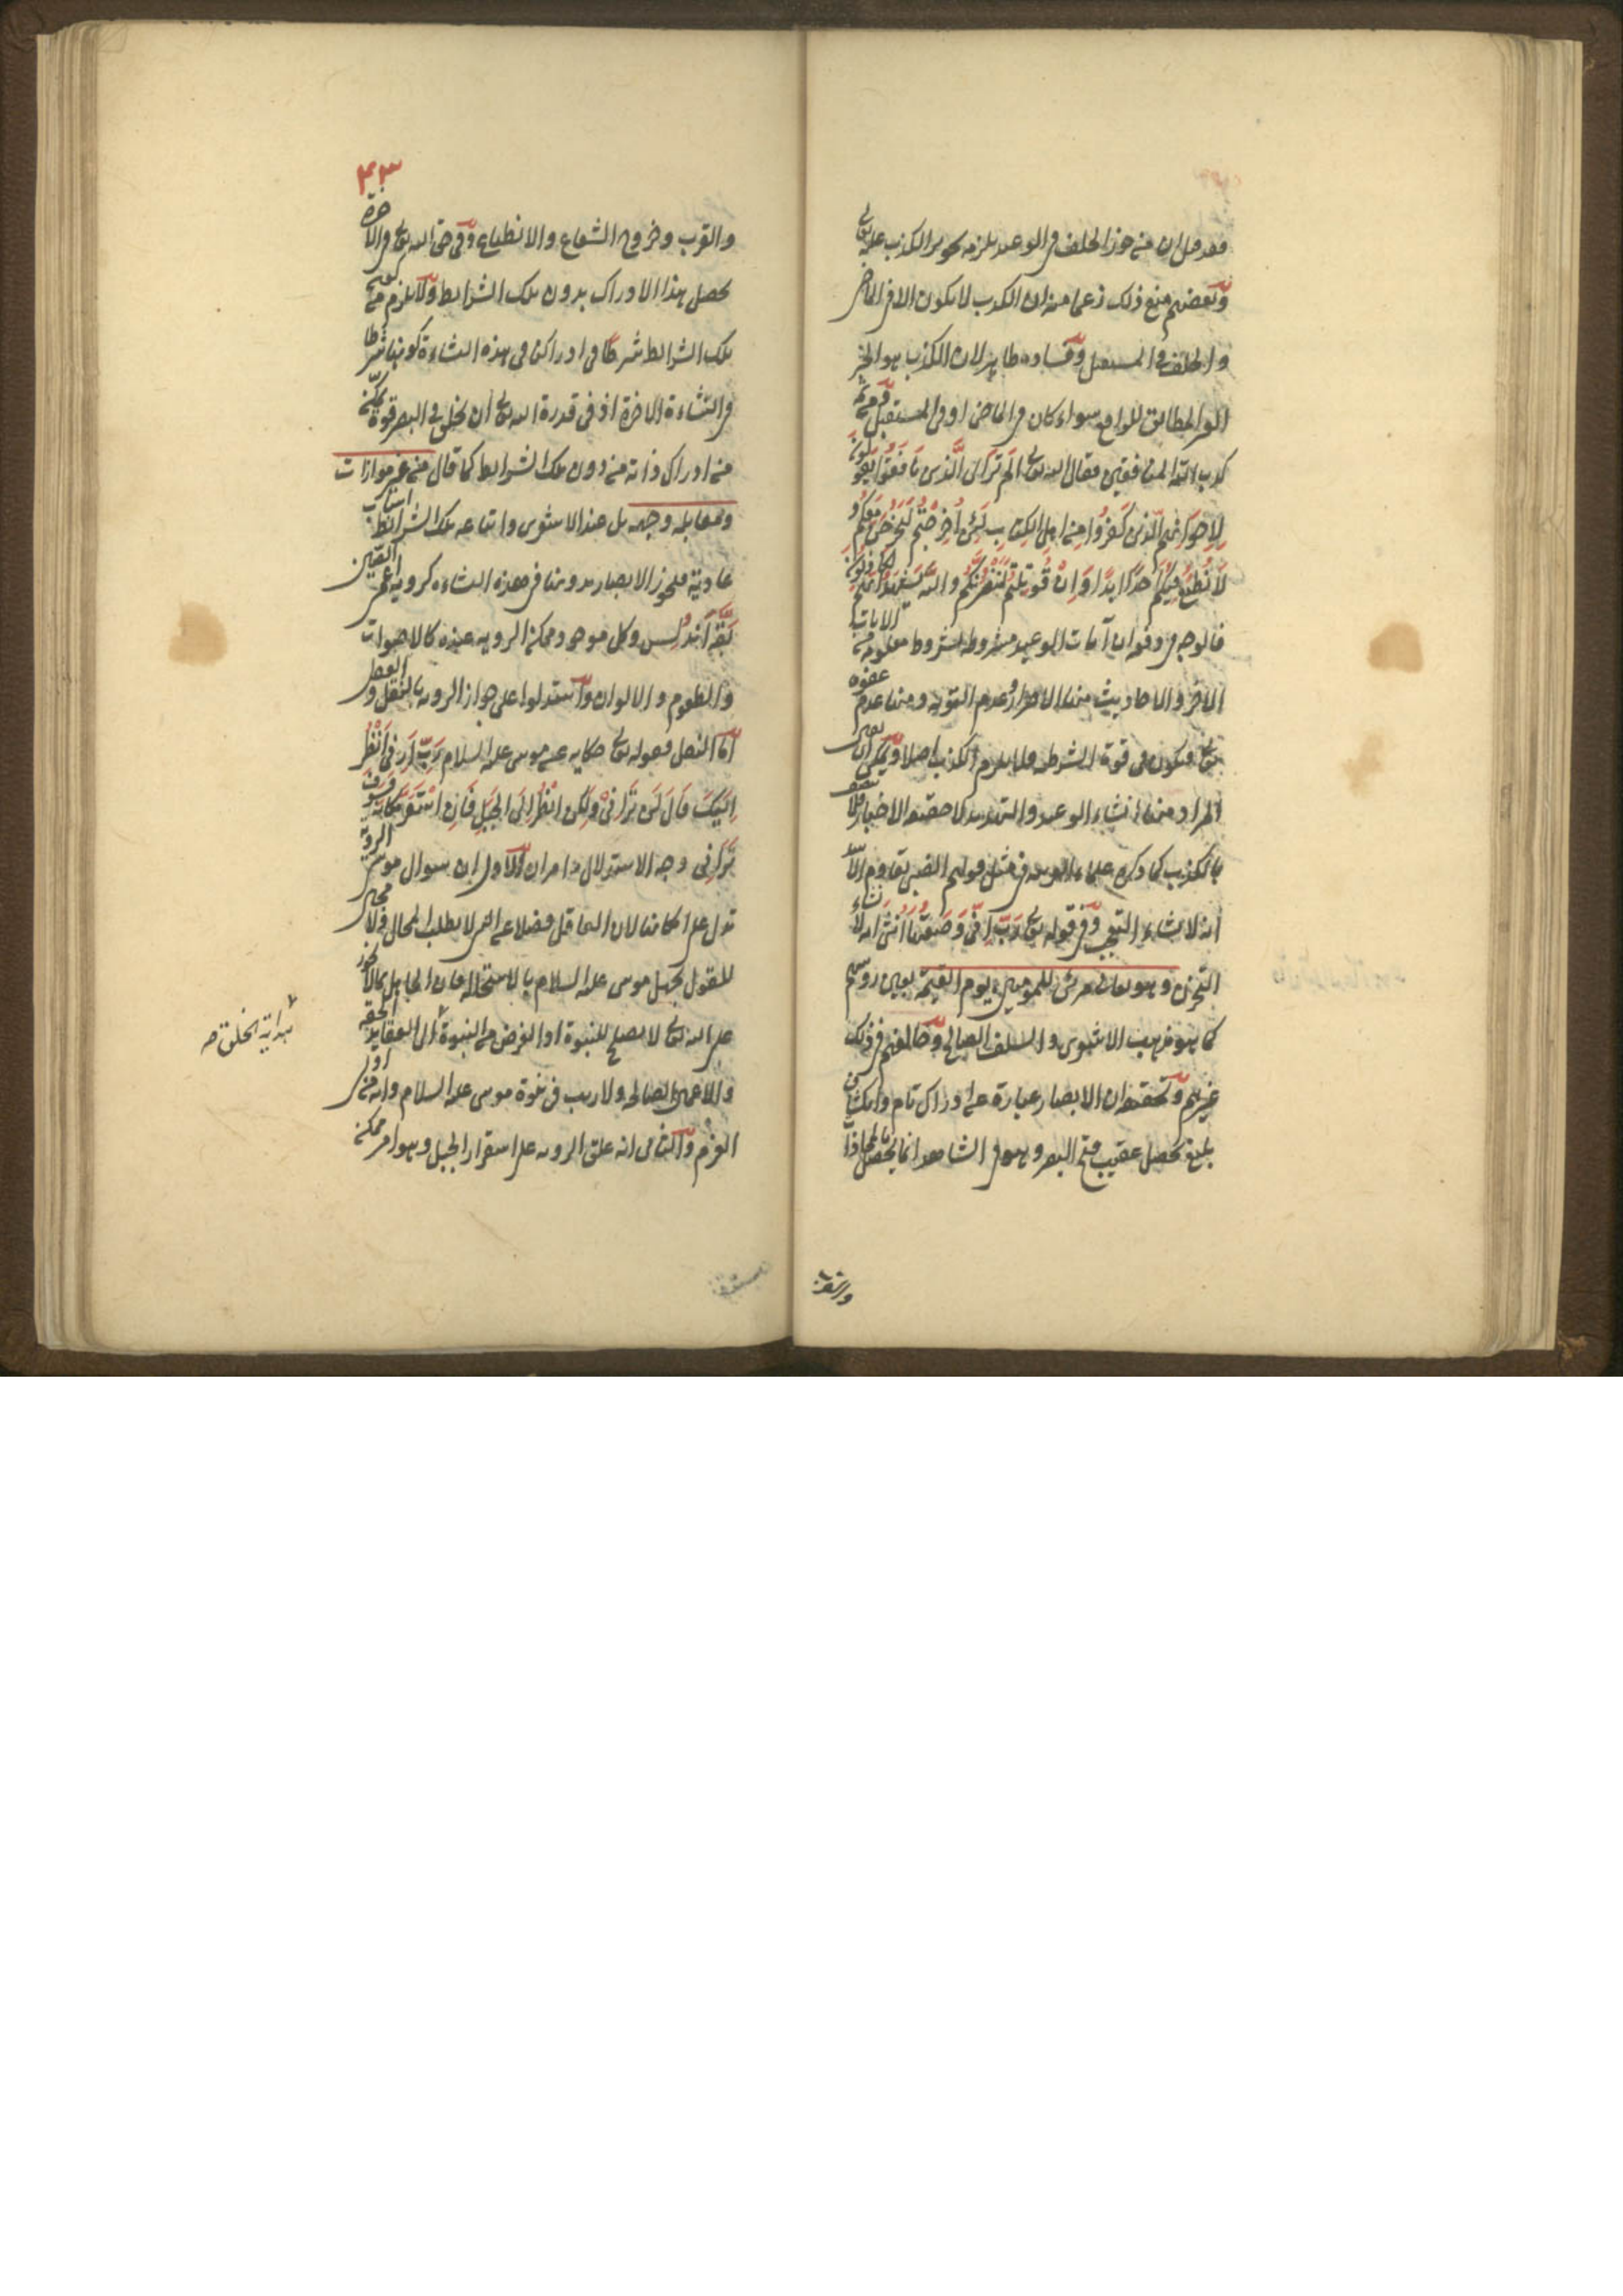 فقد قيل ان من جوز الخلف في الوعيد يلزمه تجويز الكذب عليه تعالى
وبعضهم منع ذلك زعما منه ان الكذب لا يكون الا في الماضي
والخلف في المستقبل وفساده ظاهر لان الكذب هو الخبر
الغير المطابق للواقع سواء كان في الماضي او في المستقبل ومن ثمه
كذب الله المنافقين فقال الله تعالى اَلَمْ تَرَ اِلَى الَّذِينَ نَافَقُوا يَقُولُونَ
لِاِخْوَانِهِمُ الَّذِينَ كَفَرُوا مِنْ اَهْلِ الْكِتَابِ لَئِنْ اُخْرِجْتُمْ لَنَخْرُجَنَّ مَعَكُمْ وَ
لَا نُطِيعُ فِيكُمْ اَحَدًا اَبَدًا وَاِنْ قُوتِلْتُمْ لَنَنْصُرَنَّكُمْ وَاللَّهُ يَشْهَدُ اِنَّهُمْ لَكَاذِبُونَ
فالوجه ان آيات الوعيد مشروطة بشروط معلومة من الايات
الاخر والاحاديث منها الاصرار وعدم التوبة ومنها عدم عفوه
تعالى فيكون في قوة الشرطية فلا يلزم الكذب اصلا ويمكن ان يقال
المراد منها انشاء الوعيد والتهديد لا حقيقة الاخبار فلا يتصف
بالكذب كما ذكره علماء العربية في مثل قولهم
انه لانشاء التعجب وفي قوله تعالى رَبِّ اِنِّي وَضَعْتُهَا اُنْثَى انه لانشاء
التحزن وهو تعالى مرئي للمؤمنين يوم القيمة بعين رؤسهم
كما هو مذهب الاشعري والسلف الصالح وخالفهم في ذلك
غيرهم وتحقيقه ان الابصار عبارة عن ادراك تام وانكشاف
بليغ يحصل عقيب فتح البصر وهو في الشاهد انما يحصل بالمحاذاة
والقرب
۴۳
والقرب وخروج الشعاع والانطباع وفي حق الله تعالى في الاخرة
يحصل هذا الادراك بدون تلك الشرايط ولا يلزم من كون
تلك الشرايط شرطا في ادراكنا في هذه النشاءة كونها شرطا
في النشاءة الاخرة اذ في قدرة الله تعالى ان يخلق في البصر قوة يمكن
من ادراك ذاته من دون تلك الشرايط كما قال من غير موازات
ومقابلة وجهة بل عند الاشعري واتباعه تلك الشرايط اسباب
عادية فيجوز الابصار بدونها في هذه النشاءة كروية اعمى الصين
بَقَّةَ اَنْدُلُس وكل موجود ممكن الروية عنده كالاصوات
والطعوم والالوان واستدلوا على جواز الروية بالنقل والعقل
اما النقل فقوله تعالى حكاية عن موسى عليه السلام رَبِّ اَرِنِي اَنْظُرْ
اِلَيْكَ قَالَ لَنْ تَرَانِي وَلَكِنِ انْظُرْ اِلَى الْجَبَلِ فَاِنِ اسْتَقَرَّ مَكَانَهُ فَسَوْفَ
تَرَانِي وجه الاستدلال به امران الاول ان سوال موسى الروية
تدل على امكانها لان العاقل فضلا عن النبي لا يطلب المحال ولا مجال
للقول بجهل موسى عليه السلام بالاستحالة فان الجاهل بما لا يجوز
على الله تعالى لا يصلح للنبوة اذ الغرض من النبوة الى العقايد الحقة
والاعمال الصالحة ولا ريب في نبوة موسى عليه السلام وانه من اولي
العزم والثاني انه علق الروية على استقرار الجبل وهو امر ممكن
هداية الخلق صه